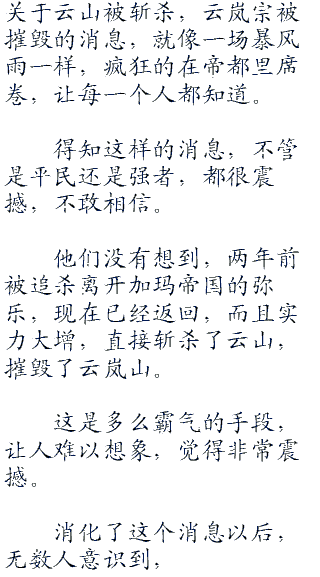 关于云山被斩杀，云岚宗被
摧毁的消息，就像一场暴风
雨一样，疯狂的在帝都里席
卷，让每一个人都知道。
得知这样的消息，不管
是平民还是强者，都很震
撼，不敢相信。
他们没有想到，两年前
被追杀离开加玛帝国的弥
乐，现在已经返回，而且实
力大增，直接斩杀了云山，
摧毁了云岚山。
这是多么霸气的手段，
让人难以想象，觉得非常震
撼。
消化了这个消息以后，
无数人意识到，